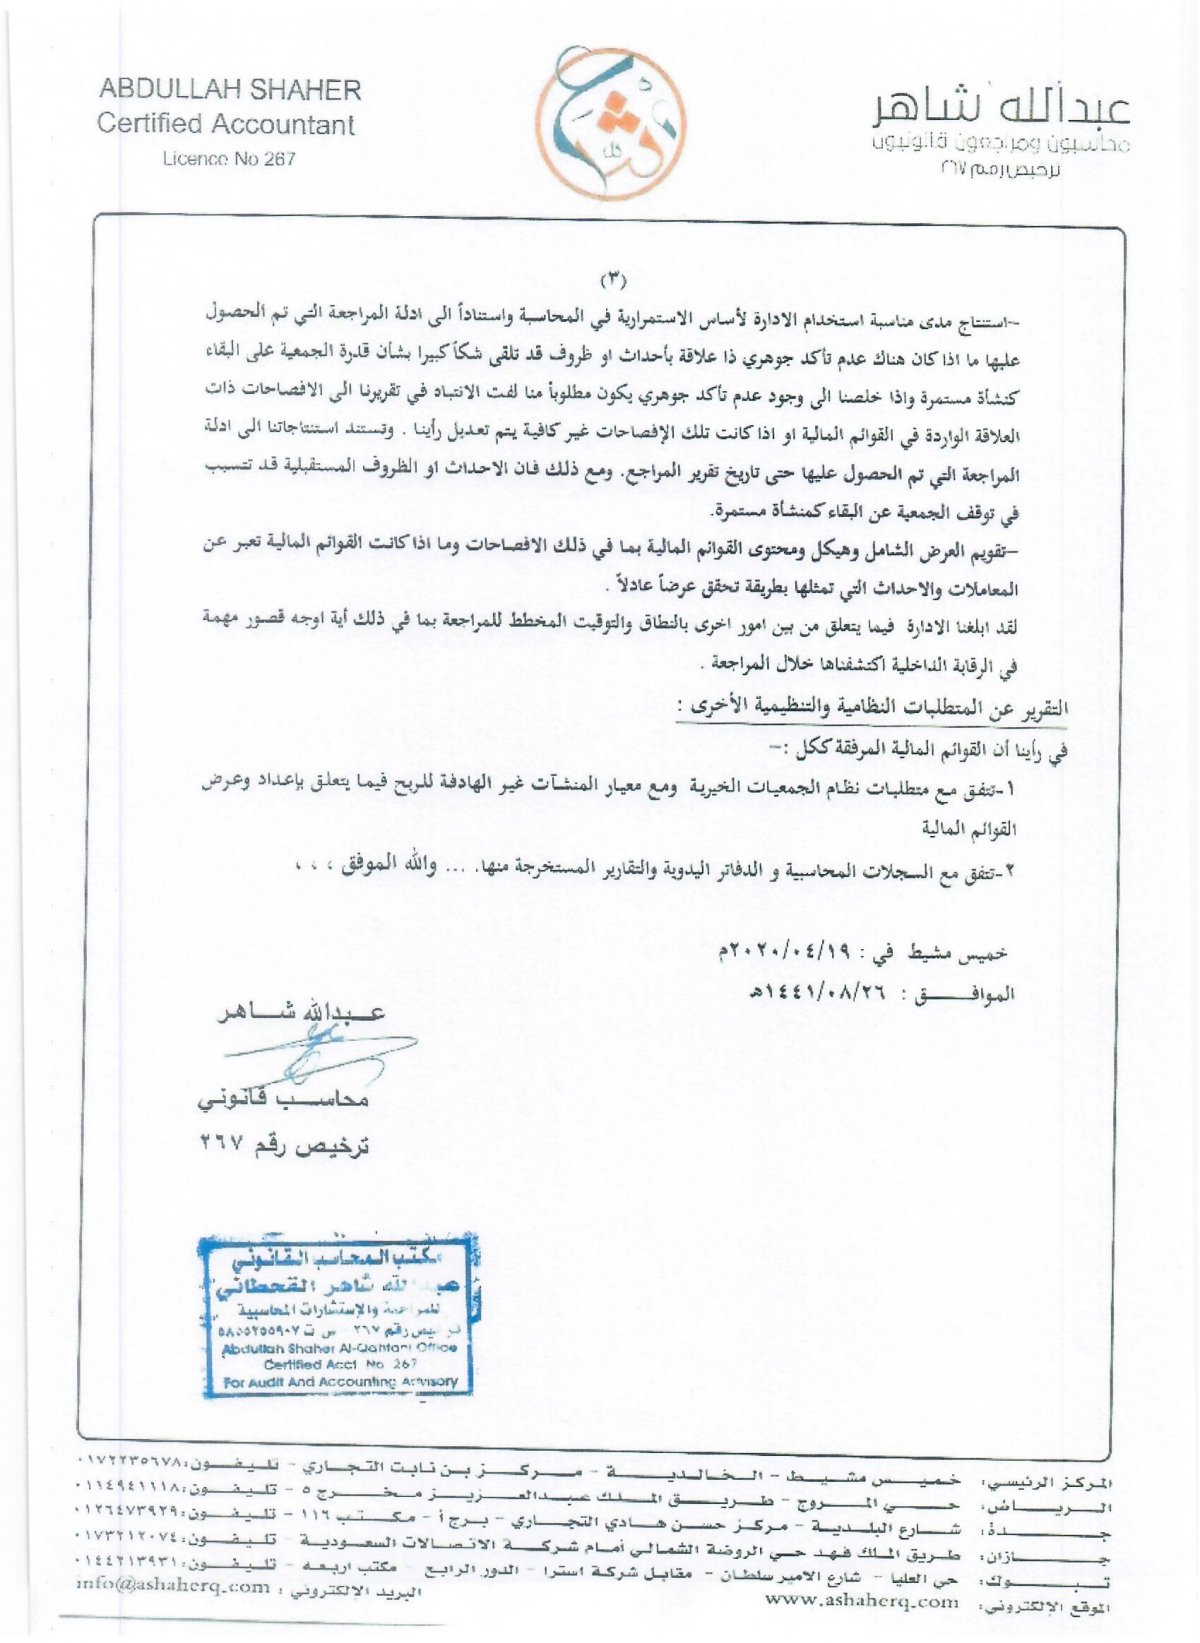 ABDULLAH SHAHER
Certified Accountant
Licence No 267
عبدالله شاهر
محاسبون ومراجعون قانونيون
ترخيص رقم ٢٦٧
(٣)
–استنتاج مدى مناسبة استخدام الادارة لأساس الاستمرارية في المحاسبة واستناداً الى ادلة المراجعة التي تم الحصول
عليها ما اذا كان هناك عدم تأكد جوهري ذا علاقة بأحداث او ظروف قد تلقى شكاً كبيرا بشأن قدرة الجمعية على البقاء
كنشأة مستمرة واذا خلصنا الى وجود عدم تأكد جوهري يكون مطلوباً منا لفت الانتباه في تقريرنا الى الافصاحات ذات
العلاقة الواردة في القوائم المالية او اذا كانت تلك الإفصاحات غير كافية يتم تعديل رأينا . وتستند استنتاجاتنا الى ادلة
المراجعة التي تم الحصول عليها حتى تاريخ تقرير المراجع. ومع ذلك فان الاحداث او الظروف المستقبلية قد تتسبب
في توقف الجمعية عن البقاء كمنشأة مستمرة.
–تقويم العرض الشامل وهيكل ومحتوى القوائم المالية بما في ذلك الافصاحات وما اذا كانت القوائم المالية تعبر عن
المعاملات والاحداث التي تمثلها بطريقة تحقق عرضاً عادلاً .
لقد ابلغنا الادارة فيما يتعلق من بين امور اخرى بالنطاق والتوقيت المخطط للمراجعة بما في ذلك أية اوجه قصور مهمة
في الرقابة الداخلية اكتشفناها خلال المراجعة .
التقرير عن المتطلبات النظامية والتنظيمية الأخرى :
في رأينا أن القوائم المالية المرفقة ككل :–
١–تتفق مع متطلبات نظام الجمعيات الخيرية ومع معيار المنشآت غير الهادفة للربح فيما يتعلق بإعداد وعرض
القوائم المالية
٢–تتفق مع السجلات المحاسبية و الدفاتر اليدوية والتقارير المستخرجة منها. ... والله الموفق ، ، ،
خميس مشيط في : ٢٠٢٠/٠٤/١٩م
الموافق : ١٤٤١/٠٨/٢٦هـ
عبدالله شاهر
محاسب قانوني
ترخيص رقم ٢٦٧
مكتب المحاسب القانوني
عبدالله شاهر القحطاني
للمراجعة والإستشارات المحاسبية
ترخيص رقم ٢٦٧ - س ت ٥٨٥٥٢٥٥٩٠٧
Abdullah Shaher Al-Qahtani Office
Certified Acct No. 267
For Audit And Accounting Advisory
المركز الرئيسي: خميس مشيط - الخالدية - مركز بن نابت التجاري - تليفون: ٠١٧٢٢٣٥٦٧٨
الرياض: حي المروج - طريق الملك عبدالعزيز مخرج ٥ - تليفون: ٠١١٤٩٤١١١٨
جدة: شارع البلدية - مركز حسن هادي التجاري - برج أ - مكتب ١١٦ - تليفون: ٠١٢٦٤٧٣٩٢٩
جازان: طريق الملك فهد حي الروضة الشمالي أمام شركة الاتصالات السعودية تليفون: ٠١٧٣٢١٢٠٧٤
تبوك: حي العليا - شارع الامير سلطان - مقابل شركة استرا - الدور الرابع - مكتب اربعه - تليفون: ٠١٤٤٢١٣٩٣١
الموقع الإلكتروني: www.ashaherq.com البريد الالكتروني : info@ashaherq.com